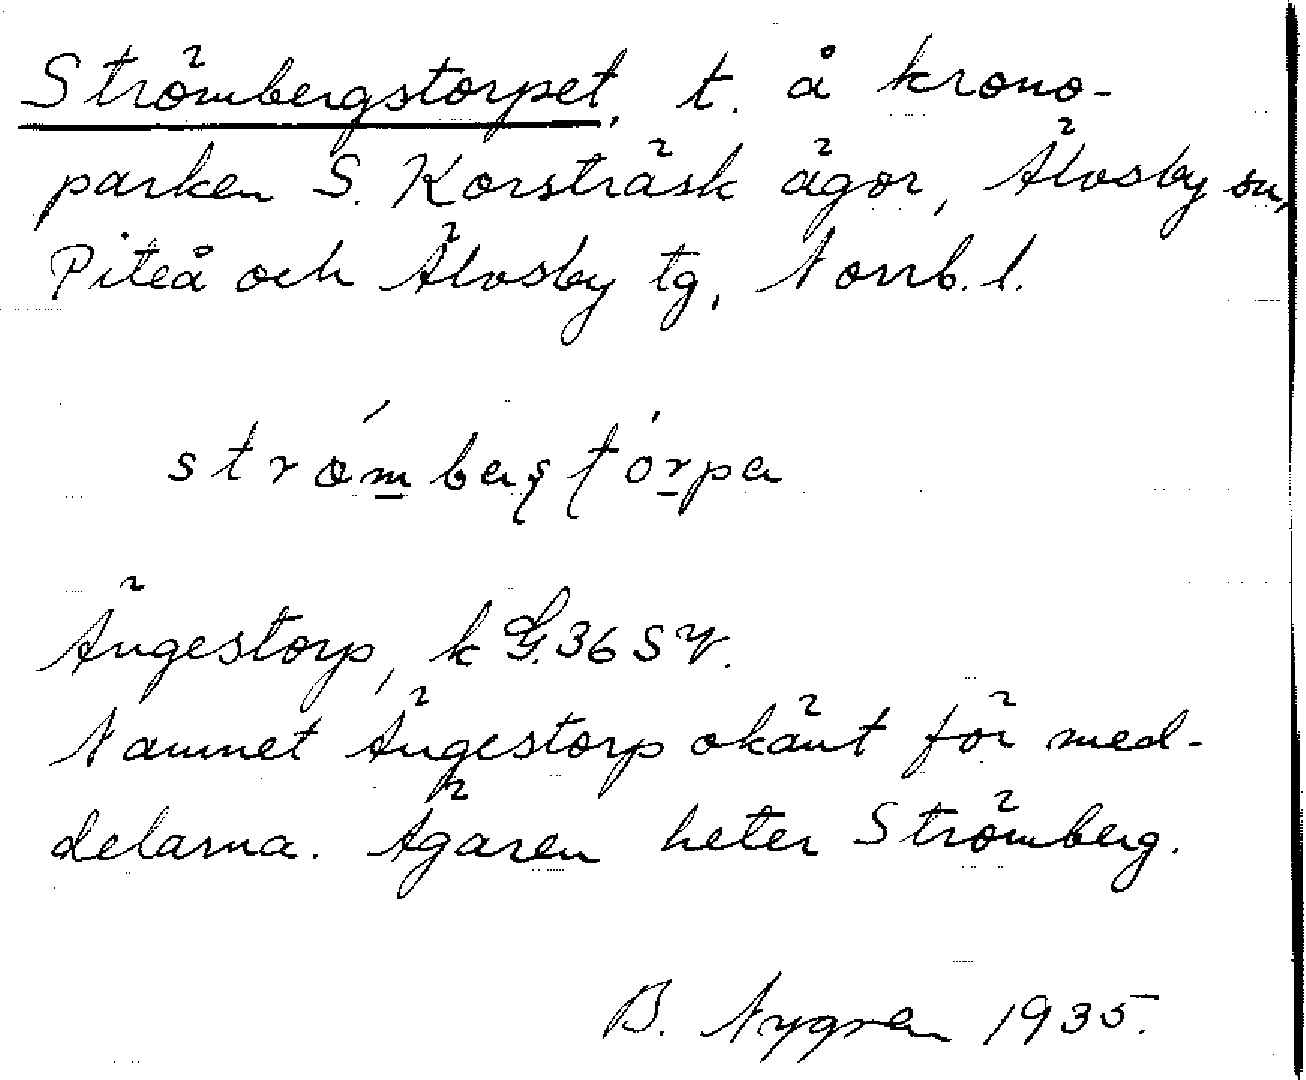 Strömbergstorpet, t. å krono-
parken S. Korsträsk ägor, Älvsby sn,
Piteå och Älvsby tg, Norrb. l.
Ängestorp, k G.36 SV.
Namnet Ängestorp okänt för med-
delarna. Ägaren heter Strömberg.
B. Nygren 1935.